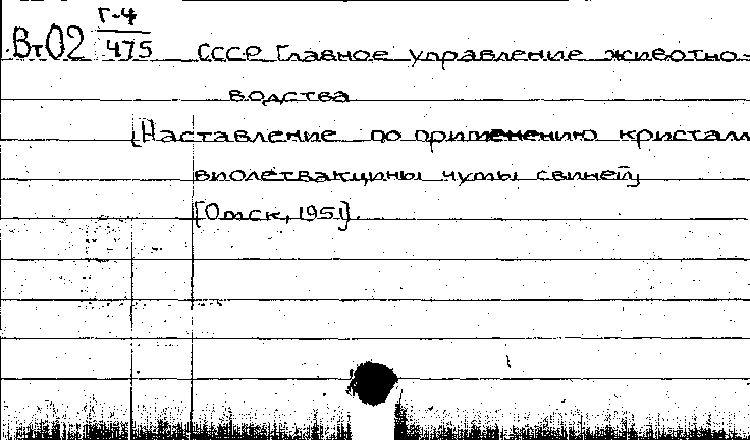 Г-4
Вт02 475 СССР Главное управление животно-
водства
[Наставление по применению кристалл
виолетвакцины чумы свиней]
[Омск, 1951].